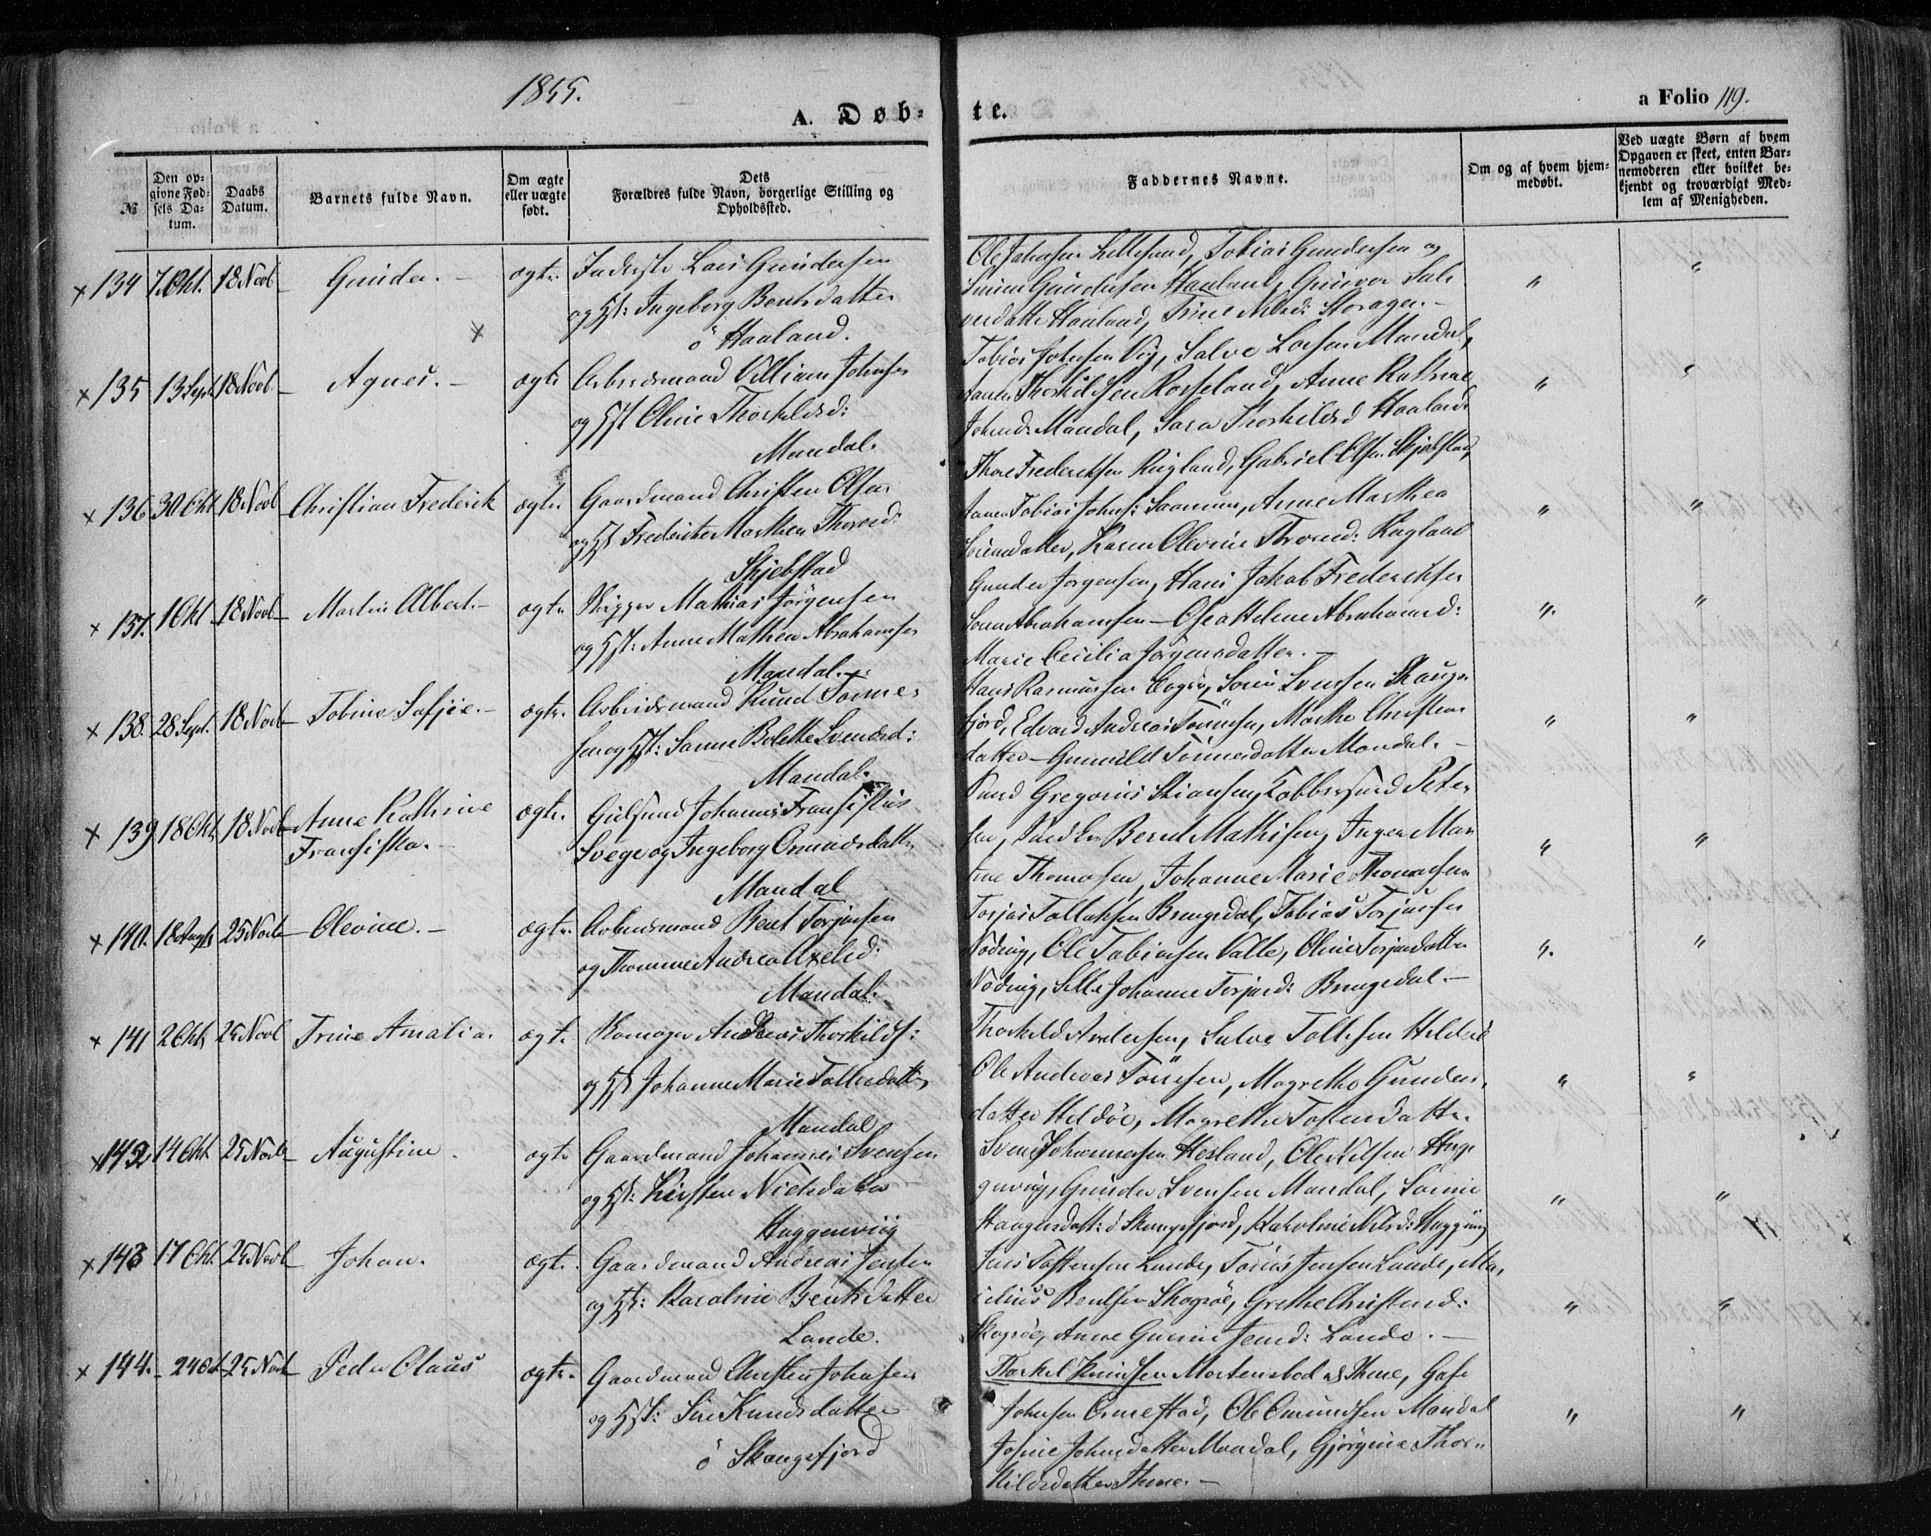 1855.
A. Døb-
te.
a Folio 119.
№
Den opgivne Fødsels Datum.
Daabs Datum.
Barnets fulde Navn.
Om ægte eller uægte født.
Dets Forældres fulde Navn, borgerlige Stilling og Opholdssted.
Faddernes Navne.
Om og af hvem hjemmedøbt.
Ved uægte Børn af hvem Opgaven er skeet, enten Barnemoderen eller hvilket bekjendt og troværdigt Medlem af Menigheden.
134 7 Okt. 18 Novb Gunder. ægte. Inderste Lars Gundersen
og Hst: Ingeborg Bentsdatter
ö Haaland.
Ole Johnsen Lillesund, Tobias Gundersen og
Gundersen Haaland, Gunvor Sal
verdatter Haaland, Trine
135 13 Sept 18 Novb Agnes. ægte Arbeidsmand Villiam Johnsen
og Hst Oline Thorkildsd:
Mandal.
Tobias Johnsen Vig, Salve Larsen Mandal,
Thorkildsen Rosseland, Anne Kathrine
Johnsd: Mandal, Sara Thorkildsd Haaland
136 30 Okt 18 Novb Christian Frederik ægte. Gaardmand Christen Olsen
og Hst Frederikke Marthea Thorsd:
Skjebstad
Thore Frederiksen Rugland, Gabriel Olsen Skjebstad,
Tobias Johns: Saanum, Anne Marthea
datter, Karen Olevine Thorsd: Rugland
137. 1 Okt 18 Novb Martin Albert. ægte. Skipper Mathias Jørgensen
og Hst: Anne Mathea Abrahamsen
Mandal.
Gunder Jørgensen, Hans Jakob Frederiksen
Abrahamsen – Olea Helene Abrahamsd:
Marie Cecilia Jørgensdatter.
138. 28 Sept. 18 Novb Tobine Sofie. ægte. Arbeidsmand Knud Tønnes
sen og Hst: Sanne Bolette Svendsd:
Mandal.
Hans Rasmussen Svensen Skougs
fjord, Edvard Andreas Tønnesen, Marthe Christens
datter – Gunnild Tønnesdatter Mandal.
139 18 Okt 18 Novb Anne Kathrine ægte. Gulsmed Johannes Fransiskus
Fransiska. Svege og Ingeborg Omundsdatter
Mandal
Gregorius Kobbersmed Peter
sen, Bernt Mathisen, Inger Mar
Thomasen, Johanne Marie Thomasen
140. 18 Augst 25 Novb Olevine. ægte. Arbeidsmand Bent Torjusen
og Thomine Andrea Axelsd:
Mandal.
Torjus Tallaksen Bringsdal, Tobias Torjusen
Nøding, Ole Tobiasen Valle, Oline Torjusdatter
Nøding, Johanne Torjusd: Bringsdal.
141 2 Okt 25 Novb Trine Amalia. ægt. Andreas Thorkilds:
og Hst Johanne Marie Tollisdatter
Mandal
Thorkeld Andersen, Salve Tollisen Hildøe
Ole Andreas Tønnesen, Magrethe Gunders
datter Hildöe, Magrethe datter.
142 14 Okt 25 Novb Augustine. ægte Gaardmand Johannes Svensen
og Hst: Kirsten Nielsdatter
Haggenviig
Svend Johannesen Hesland, Ole Nilsen Hag
genviig, Gunder Svensen Mandal,
ö Skougsfjord, Karoline Nilsd: Haggenviig
143 17 Okt. 25 Novb Johan. ægte. Gaardmand Andreas Jensen
og Hst: Karoline Bentsdatter
Lande.
Jens Lande, Tobias Jensen Lande,
Bentsen Skogsøe, Grethe Christensd:
Skogsøe, Anne Jensd: Lande.
144. 24 Okt 25 Novb Peder Olaus ægte. Gaardmand Christen Johnsen
og Hst: Siri Knudsdatter
ö Skougsfjord
Thorkel Mortensbod Thime,
Johnsen Ormestad, Ole Omundsen Mandal
Josine Johnsdatter Mandal, Gjørgine Thor
kildsdatter Thime.